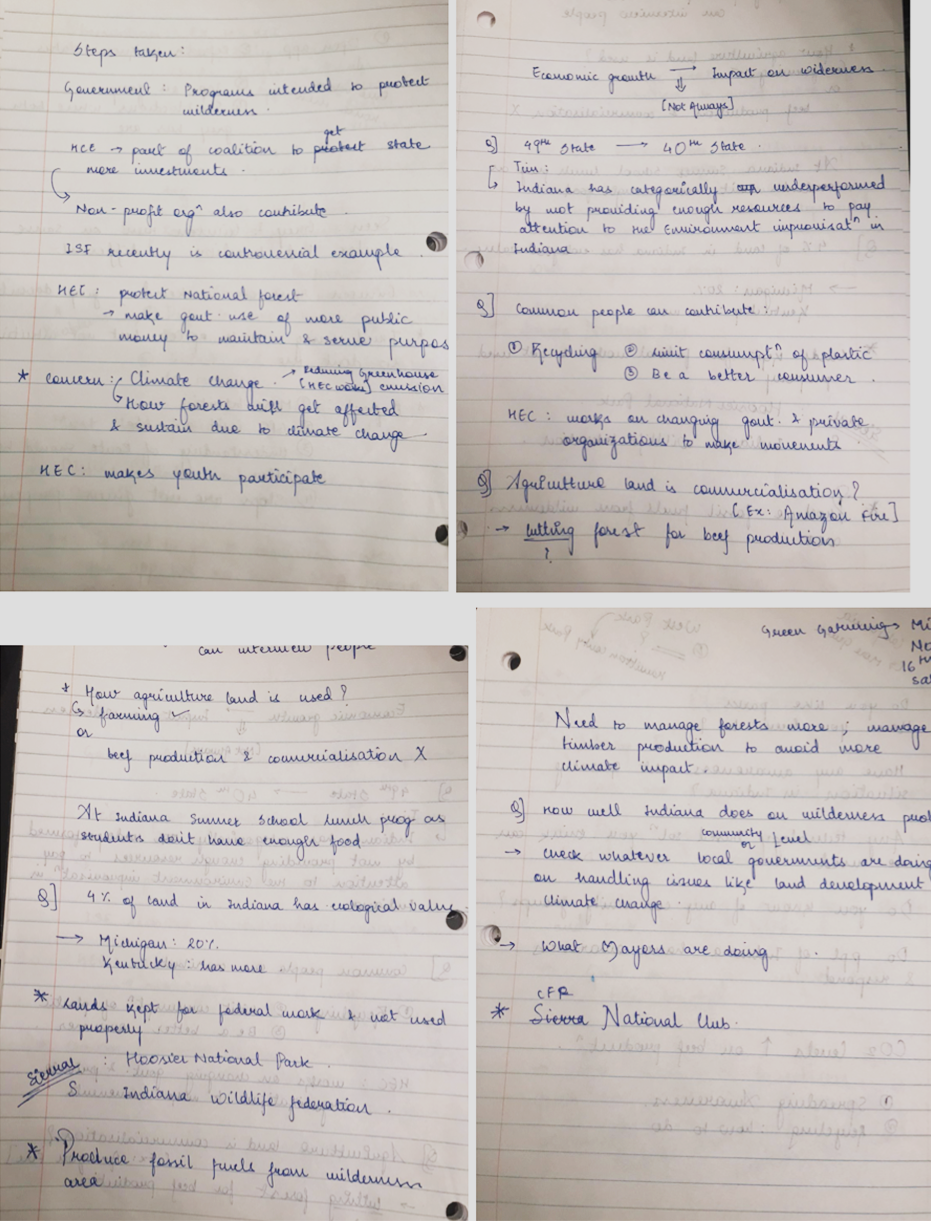 Steps taken:
Government: Programs intended to protect
wilderness.
get
HCE → part of coalition to protect state
more investments.
Non-profit orgⁿ also contribute.
ISF recently is controversial example.
HEC: protect National forest
→ make govt use of more public
money to maintain & serve purpos
* concern: Climate change. → reducing Greenhouse
[HEC works] emission
How forests will get affected
& sustain due to climate change
HEC: makes youth participate
Economic growth → Impact on wilderness.
⇓
[Not Always]
Q] 49ᵗʰ State → 40ᵗʰ State.
Tim:
Indiana has categorically underperformed
by not providing enough resources to pay
attention to the Environment improvisatⁿ in
Indiana
Q] Common people can contribute:
① Recycling ② limit consumptⁿ of plastic
③ Be a better consumer.
HEC: works on changing govt. & private
organizations to make movements.
Q] Agriculture land is commercialisation?
[Ex: Amazon Fire]
→ cutting forest for beef production
?
can interview people
* How agriculture land is used?
↳ farming ✓
or
beef production & commercialisation X
At Indiana Summer School lunch prog as
students don't have enough food
Q] 4% of land in Indiana has ecological value.
→ Michigan: 20%.
Kentucky: has more
* Lands kept for federal work & not used
properly
Sierra
: Hoosier National Park.
S Indiana Wildlife federation.
* Produce fossil fuels from wilderness
area
Green → Mi
No
16ᵗʰ
sat
Need to manage forests more; manage
timber production to avoid more
climate impact.
Q] How well Indiana does on wilderness prot
community
or Level
→ check whatever local goverments are doing
on handling issues like land development
climate change.
→ What Mayors are doing.
CFR
* Sierra National Club.